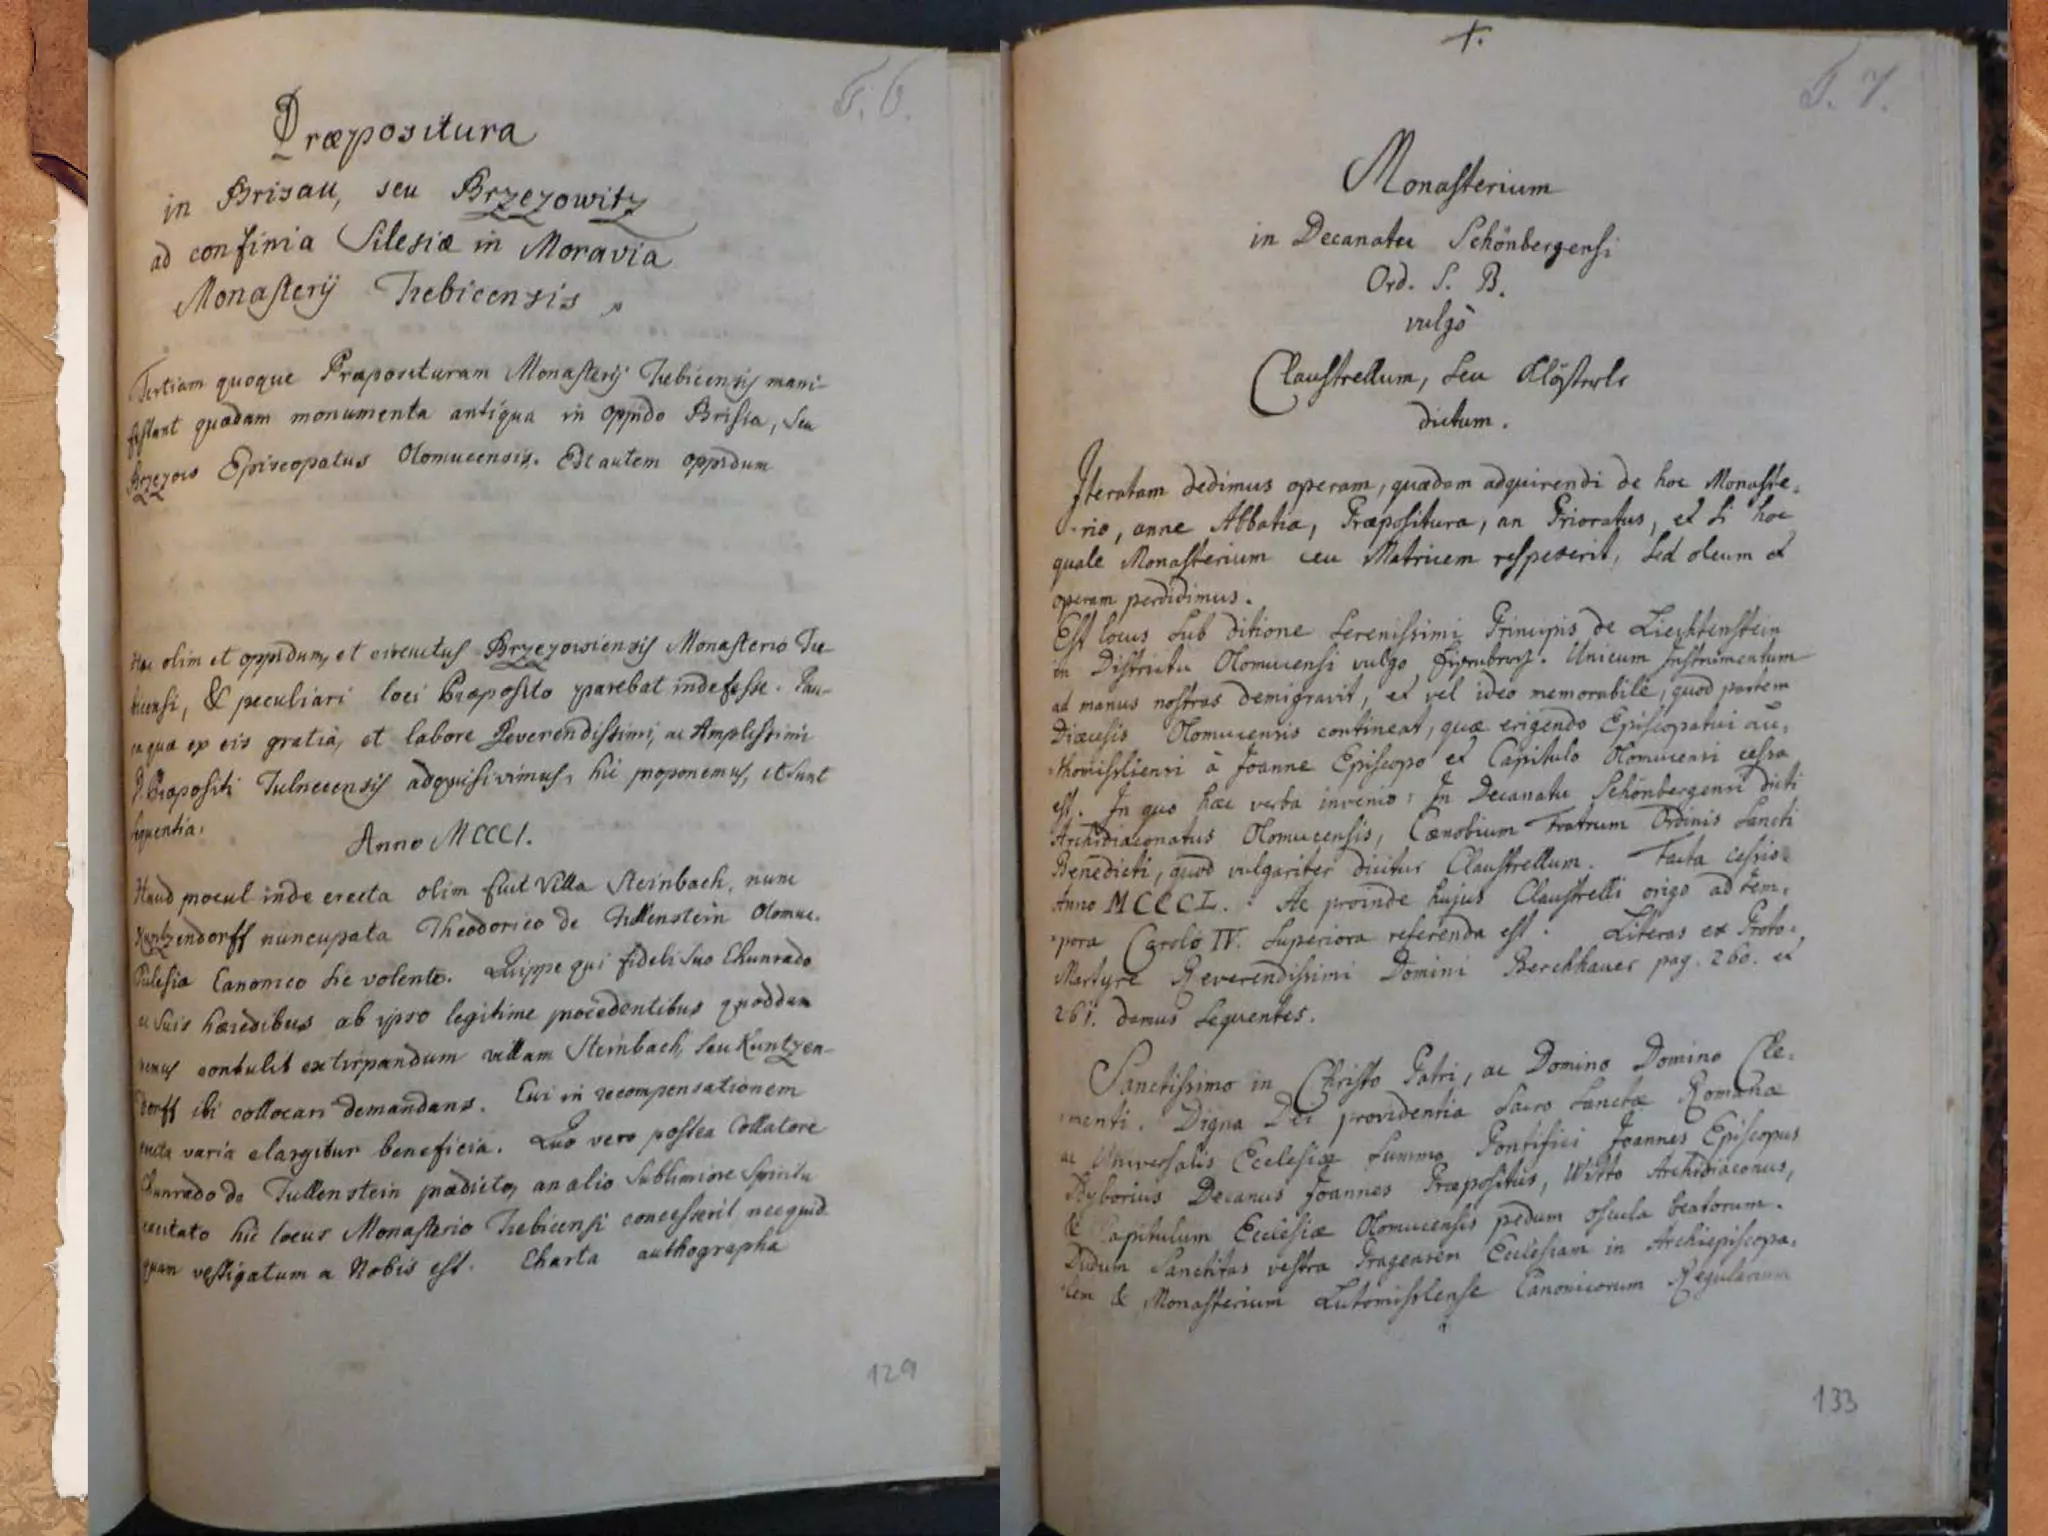 F. 6.
Præpositura
in Brisau, seu Brzezowitz
ad confinia Silesiæ in Moravia
Monasterij Trebicensis
Tertiam quoque Præposituram Monasterij Trebicensis mani-
festant quædam monumenta antiqua in oppido Brisia, seu
Brzezow Episcopatus Olomucensis. Est autem oppidum
Hac olim et oppidum, et circuitus Brzezowiensis Monasterio Tre-
bicensi, & peculiari loci Præposito parebat indefesse. Pau-
ca quæ ex eis gratiâ, et labore Reverendissimi, ac Amplissimi
D. Præpositi Fulnecensis adquisivimus, hic proponemus, et sunt
sequentia:
Anno MCCCI.
Haud procul inde erecta olim fuit Villa Steinbach, nunc
Kuntzendorff nuncupata Theodorico de Fullenstein Olomuc.
Ecclesiæ Canonico sic volente. Quippe qui fideli suo Chunrado
ac suis hæredibus ab ipso legitime procedentibus quoddam
nemus contulit extirpandum villam Steinbach, seu Kuntzen-
dorff ibi collocari demandans. Cui in recompensationem
facta varia elargitur beneficia. Quo vero postea Collatore
Chunrado de Fullenstein prædicto, an alio sublimiore Spiritu
excitato hic locus Monasterio Trebicensi concesserit necquid-
quam vestigatum a Nobis est. Charta authographa
129
+.
F. 7.
Monasterium
in Decanatu Schönbergensi
Ord. S. B.
vulgò
Claustrellum, seu Klösterle
dictum.
Iteratam dedimus operam, quædam adquirendi de hoc Monaste-
rio, anne Abbatia, Præpositura, an Prioratus, et si hoc
quale Monasterium ceu Matricem respexerit, sed oleum et
operam perdidimus.
Est locus sub ditione Serenissimi Principis de Liechtenstein
in Districtu Olomucensi vulgo Eisenberg. Unicum Instrumentum
ad manus nostras demigravit, et vel ideo memorabile, quod partem
Diœcesis Olomucensis contineat, quæ erigendo Episcopatui Lu-
thomissliensi à Joanne Episcopo et Capitulo Olomucensi cessa
est. In quo hæc verba invenio: In Decanatu Schönbergensi dicti
Archidiaconatus Olomucensis, Cœnobium Fratrum Ordinis Sancti
Benedicti, quod vulgariter dicitur Claustrellum. Facta cessio
Anno MCCCL. Ac proinde hujus Claustrelli origo ad tem-
pora Carolo IV. Superiora referenda est. Literas ex Proto-
Martyre Reverendissimi Domini Berckhauer pag. 260. et
261. damus sequentes.
Sanctissimo in Christo Patri, ac Domino Domino Cle-
menti. Digna Dei providentia Sacro Sanctæ Romanæ
ac Universalis Ecclesiæ Summo Pontifici Joannes Episcopus
Byborius Decanus Joannes Præpositus, Witto Archidiaconus,
& Capitulum Ecclesiæ Olomucensis pedum oscula beatorum.
Dudum Sanctitas vestra Pragensem Ecclesiam in Archiepiscopa-
lem & Monasterium Lutomisslense Canonicorum Regularium
133